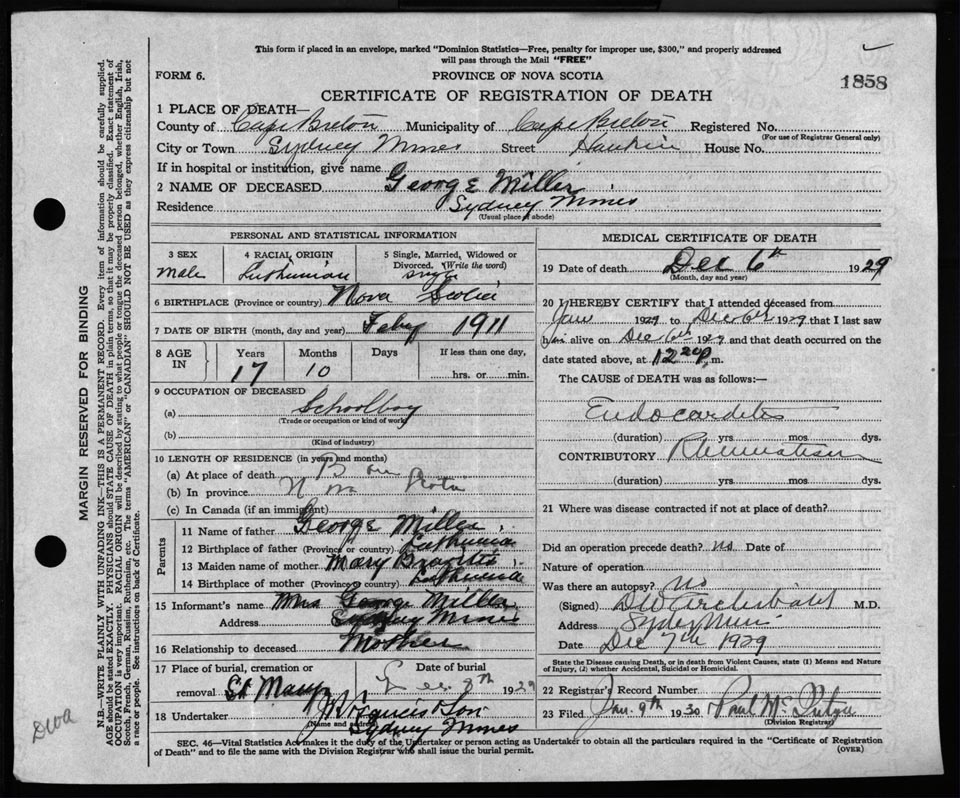 This form if placed in an envelope, marked "Dominion Statistics—Free, penalty for improper use, $300," and properly addressed
will pass through the Mail "FREE"
FORM 6.
PROVINCE OF NOVA SCOTIA
1858
CERTIFICATE OF REGISTRATION OF DEATH
1 PLACE OF DEATH—
County of Cape Breton Municipality of Cape Breton Registered No.
(For use of Registrar General only)
City or Town Sydney Mines Street House No.
If in hospital or institution, give name
2 NAME OF DECEASED George Miller
Residence Sydney Mines
(Usual place of abode)
PERSONAL AND STATISTICAL INFORMATION
3 SEX 4 RACIAL ORIGIN 5 Single, Married, Widowed or
Divorced. (Write the word)
male Lithuanian single
6 BIRTHPLACE (Province or country) Nova Scotia
7 DATE OF BIRTH (month, day and year) Feby 1911
8 AGE IN Years Months Days If less than one day,
17 10 hrs. or min.
9 OCCUPATION OF DECEASED
(a) Schoolboy
(Trade or occupation or kind of work)
(b)
(Kind of industry)
10 LENGTH OF RESIDENCE (in years and months)
(a) At place of death Born
(b) In province Nova Scotia
(c) In Canada (if an immigrant)
Parents
11 Name of father George Miller
12 Birthplace of father (Province or country) Lithuania
13 Maiden name of mother Mary
14 Birthplace of mother (Province or country) Lithuania
15 Informant's name Mrs George Miller
Address Sydney Mines
16 Relationship to deceased Mother
17 Place of burial, cremation or Date of burial
removal St Marys Dec 8th 1929
18 Undertaker J Francis & Son
(name and address)
Sydney Mines
MEDICAL CERTIFICATE OF DEATH
19 Date of death Dec 6th 1929
(Month, day and year)
20 I HEREBY CERTIFY that I attended deceased from
Jan 1929 to Dec 6th 1929 that I last saw
him alive on Dec 6th 1929 and that death occurred on the
date stated above, at 12 p.m.
The CAUSE of DEATH was as follows:—
Endocarditis
(duration) yrs. mos. dys.
CONTRIBUTORY Rheumatism
(duration) yrs. mos. dys.
21 Where was disease contracted if not at place of death?
Did an operation precede death? no Date of
Nature of operation
Was there an autopsy? no
(Signed) DW Archibald M.D.
Address Sydney Mines
Date Dec 7th 1929
State the Disease causing Death, or in death from Violent Causes, state (1) Means and Nature
of Injury, (2) whether Accidental, Suicidal or Homicidal.
22 Registrar's Record Number
23 Filed Jan. 9th 1930 Paul
(Division Registrar)
SEC. 46—Vital Statistics Act makes it the duty of the Undertaker or person acting as Undertaker to obtain all the particulars required in the "Certificate of Registration
of Death" and to file the same with the Division Registrar who shall issue the burial permit.
(OVER)
MARGIN RESERVED FOR BINDING
N.B.—WRITE PLAINLY WITH UNFADING INK—THIS IS A PERMANENT RECORD. Every item of information should be carefully supplied.
AGE should be stated EXACTLY. PHYSICIANS should STATE CAUSE OF DEATH in plain terms, so that it may be properly classified. Exact statement of
OCCUPATION is very important. RACIAL ORIGIN will be described by stating to what people or tongue the deceased person belonged, whether English, Irish,
Scotch, French, German, Russian, Ruthenian, etc. The terms "AMERICAN" or "CANADIAN" SHOULD NOT BE USED as they express citizenship but not
a race or people. See instructions on back of Certificate.